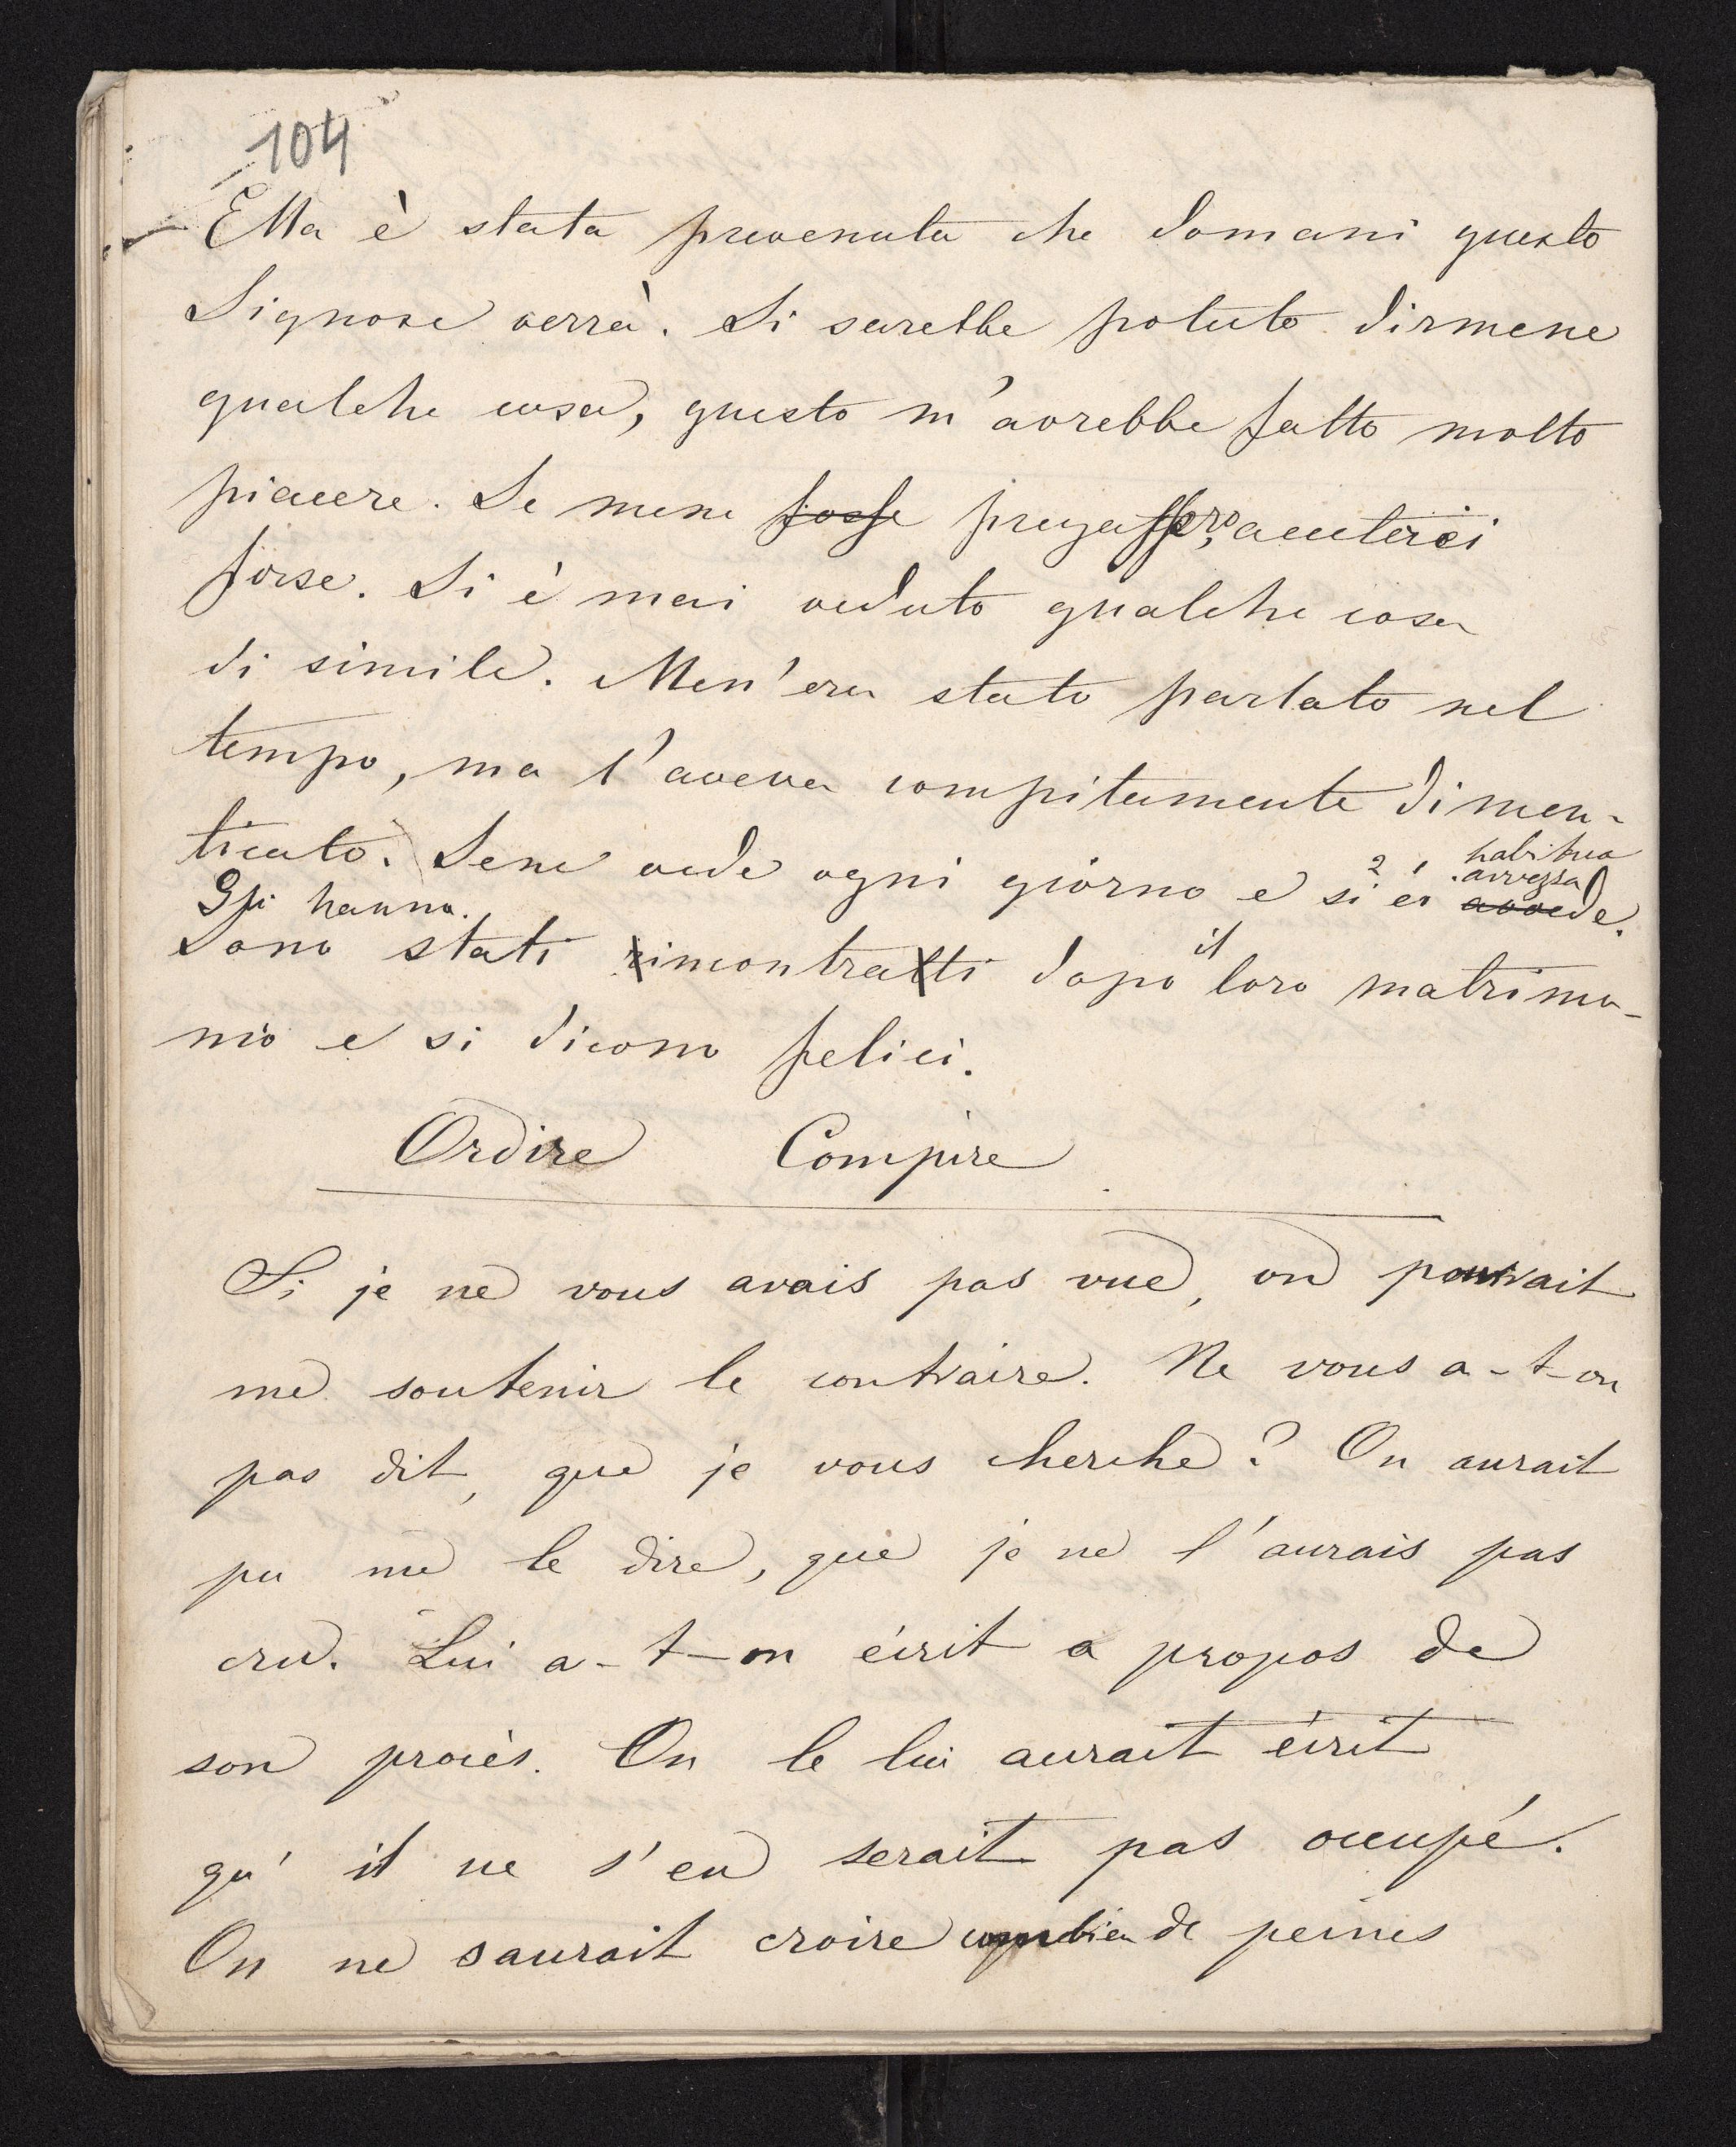 104
Ella è stata prevenuta che domani questo
Signore verrà. Si sarebbe potuto dirmene
qualche cosa, questo m'avrebbe fatto molto
piacere. Se mene fosse pregassero,
forse. Si è mai veduto qualche cosa
di simile. Men'era stato parlato nel
tempo, ma l'aveva compitamente dimen-
ticato. Sene vede ogni giorno e si ci avvede.
2 1 habitua
avvezza
Gli hanno.
Sono stati rimontratti dopo il loro matrimo-
nio e si dicono felici.
Ordire Compire
Si je ne vous avais pas vue, on pourrait
me soutenir le contraire. Ne vous a-t-on
pas dit, que je vous cherche? On aurait
pu me le dire, que je ne l'aurais pas
cru. Lui a-t-on écrit a propos de
son procès. On le lui aurait écrit
qu'il ne s'en serait pas occupé.
On ne saurait croire combien de peines